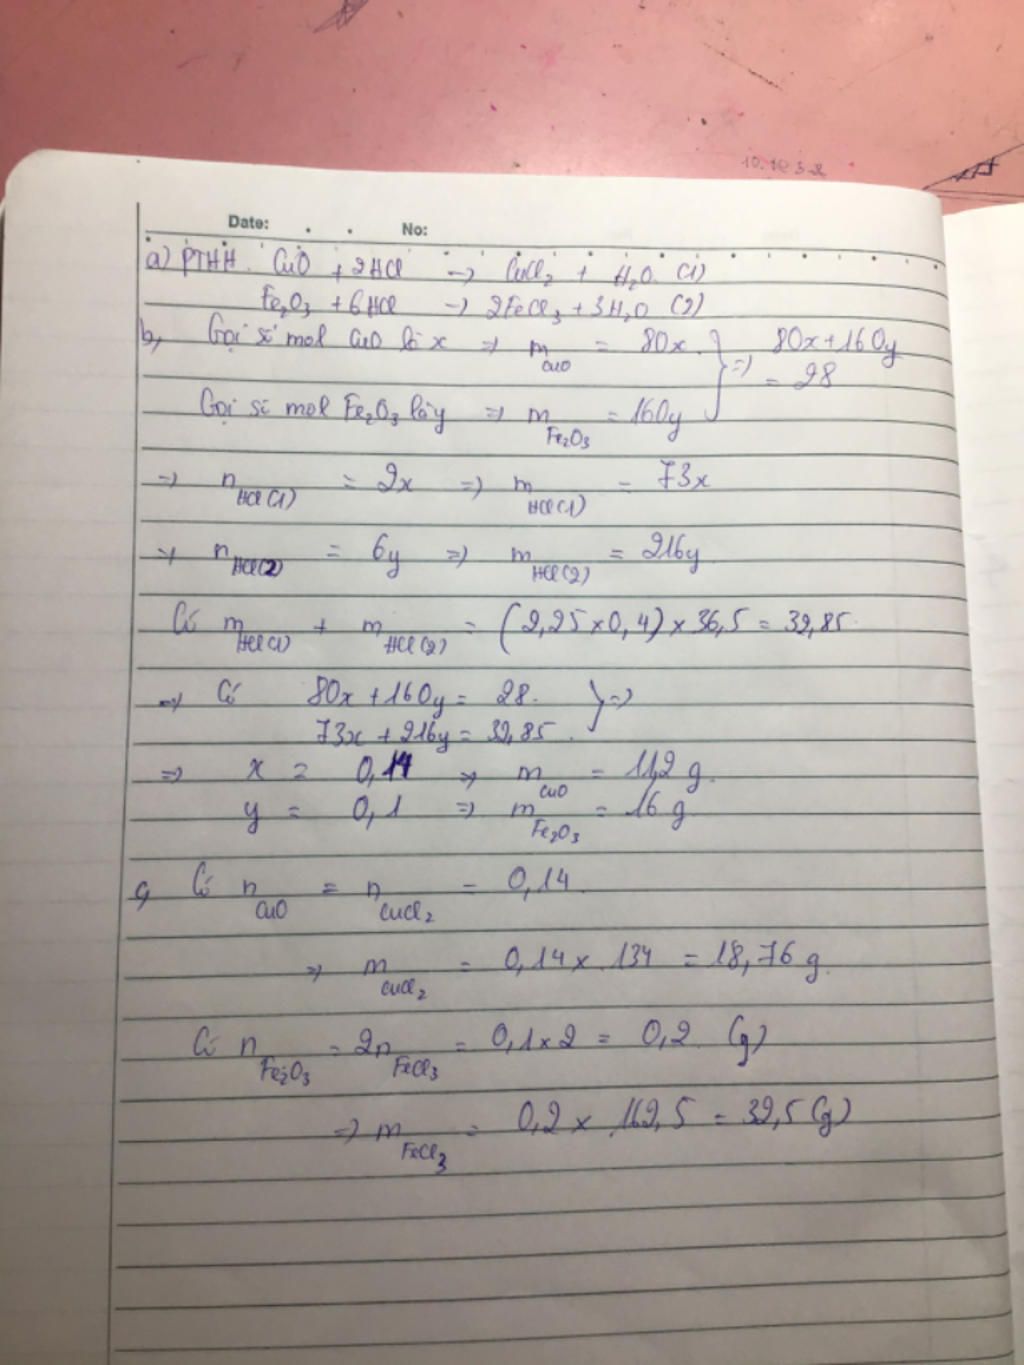 10.10 3-2
Date: . . No:
a) PTHH. CuO + 2HCl => CuCl₂ + H₂O (1)
Fe₂O₃ + 6HCl => 2FeCl₃ + 3H₂O (2)
b, Gọi số mol CuO là x => m CuO = 80x } => 80x + 160y = 28
Gọi số mol Fe₂O₃ là y => m Fe₂O₃ = 160y
=> n HCl(1) = 2x => m HCl(1) = 73x
=> n HCl(2) = 6y => m HCl(2) = 216y
Có m HCl(1) + m HCl(2) = (2,25 x 0,4) x 36,5 = 32,85.
=> Có 80x + 160y = 28. } =>
73x + 216y = 32,85.
=> x = 0,14 => m CuO = 11,2 g.
y = 0,1 => m Fe₂O₃ = 16 g
c, Có n CuO = n CuCl₂ = 0,14
=> m CuCl₂ = 0,14 x 134 = 18,76 g.
Có n Fe₂O₃ = 2n FeCl₃ = 0,1 x 2 = 0,2 (g)
=> m FeCl₃ = 0,2 x 162,5 = 32,5 (g)